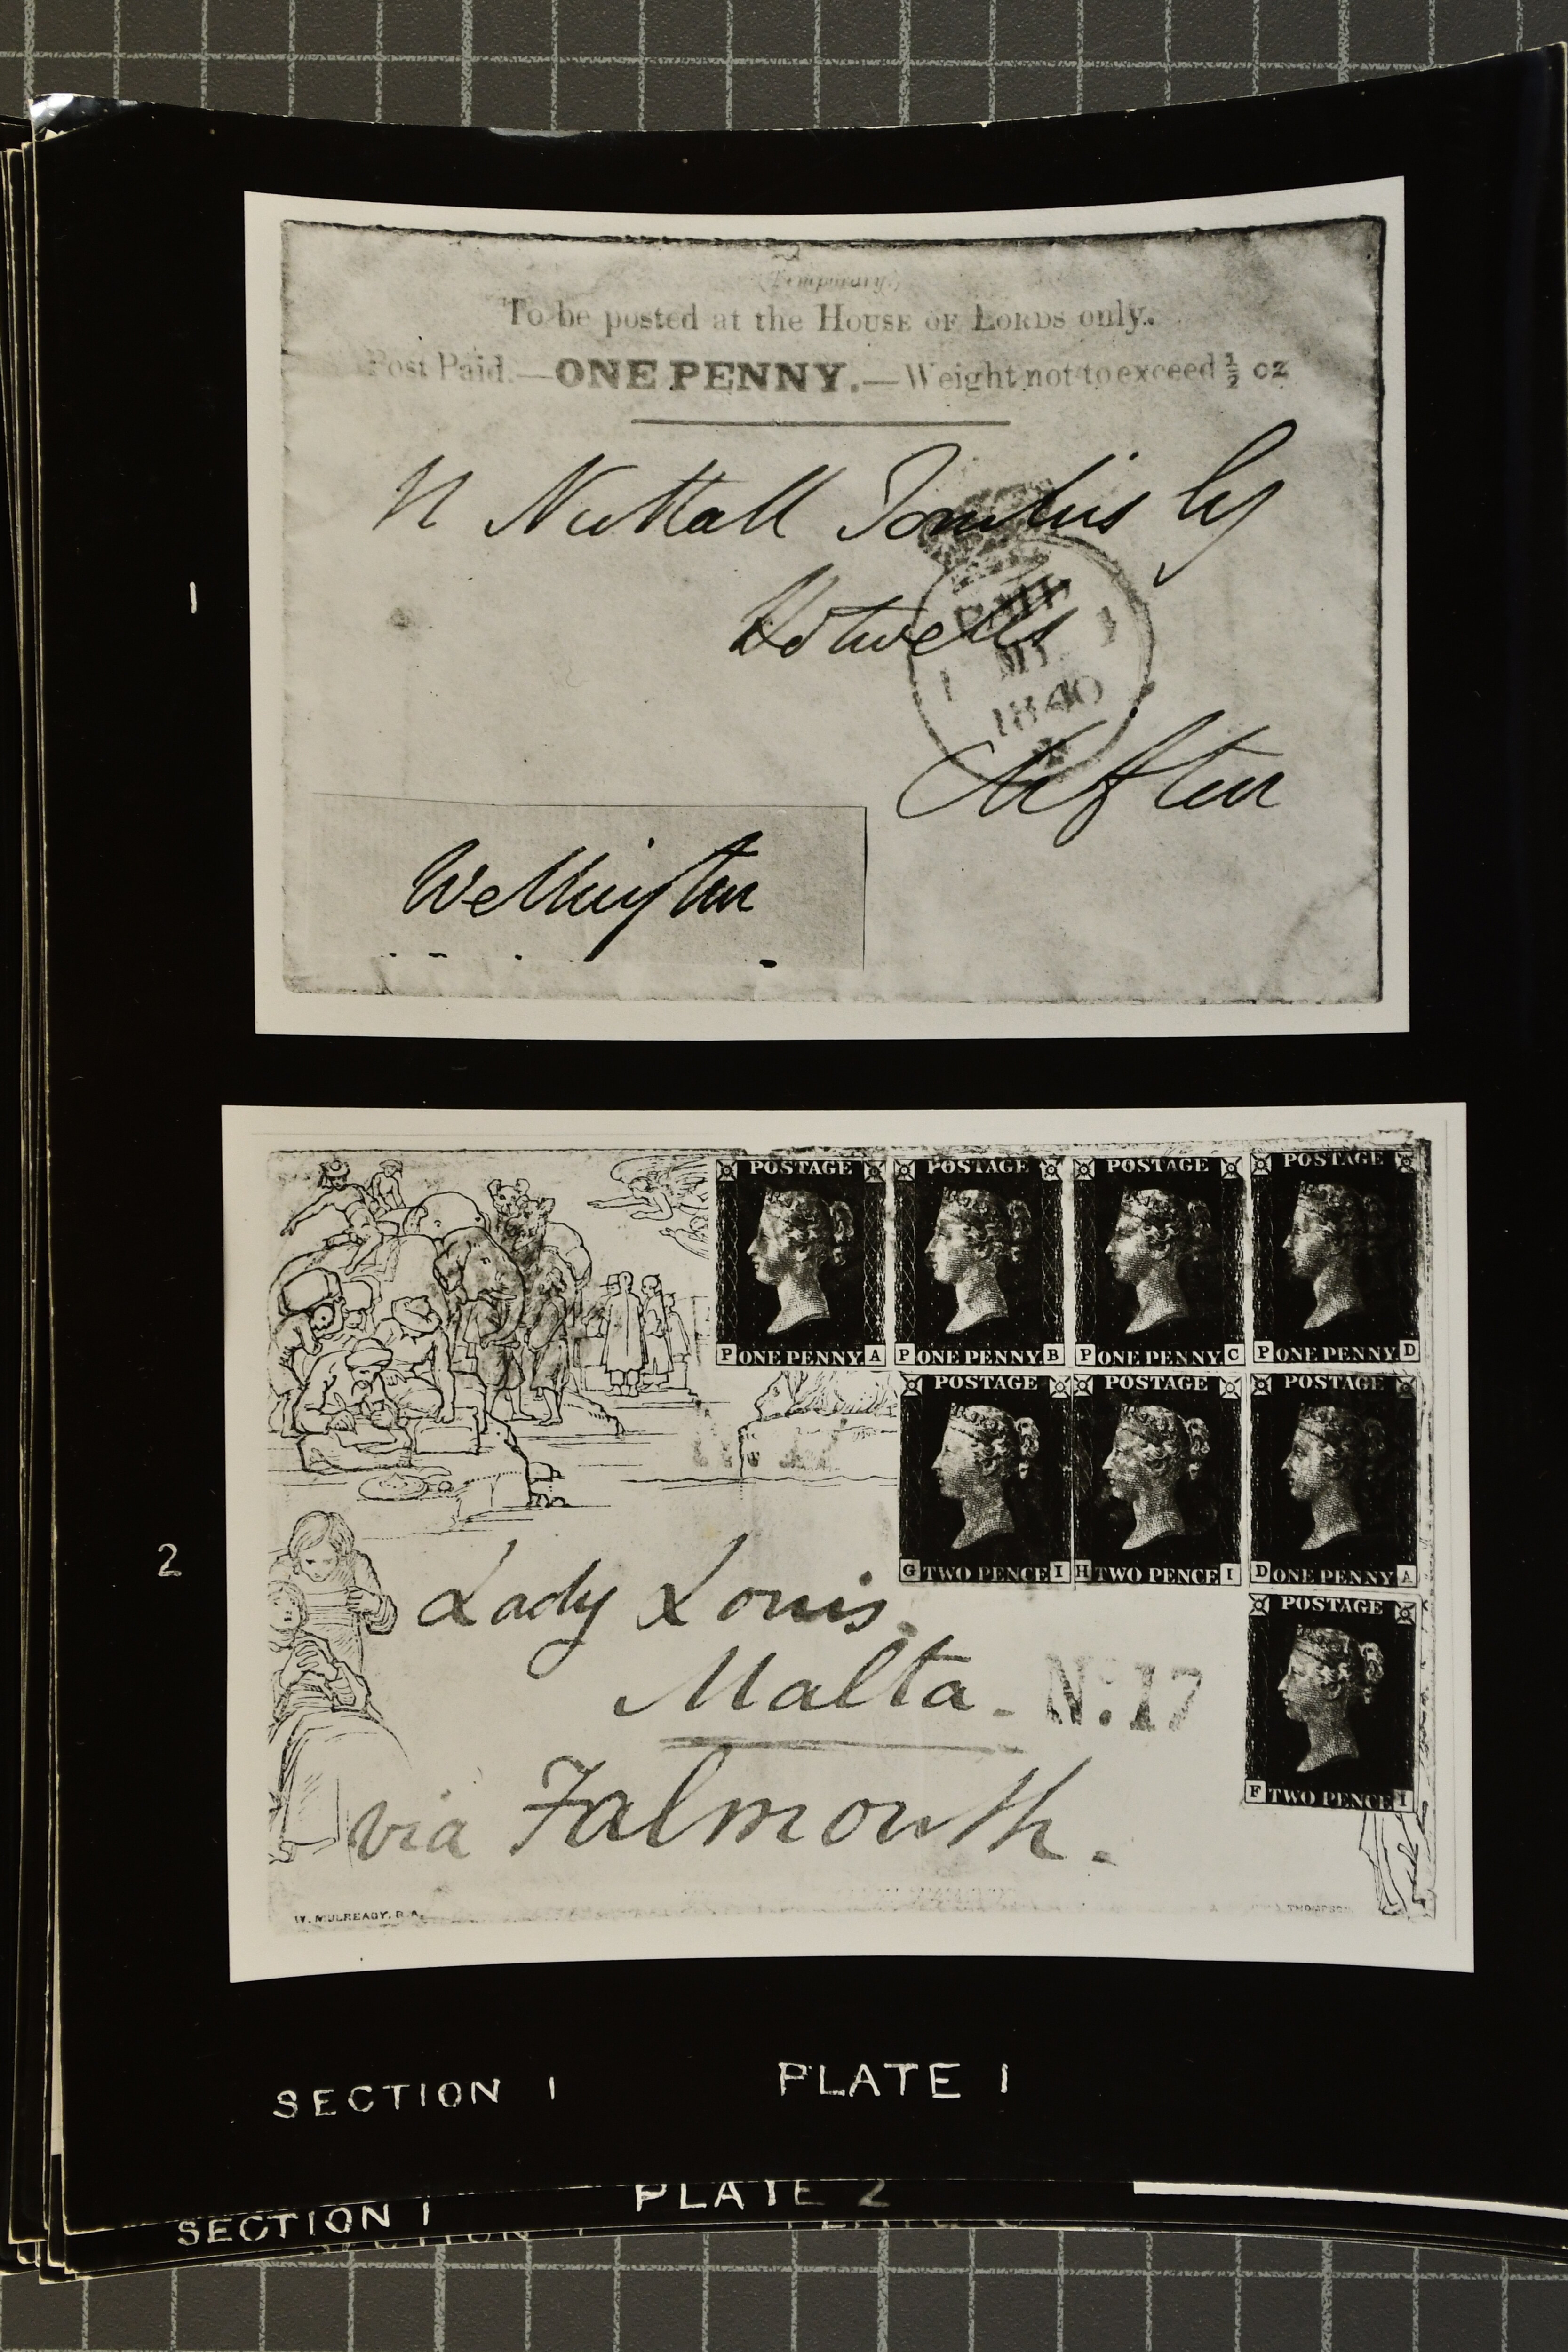 (Temporary.)
To be posted at the HOUSE OF LORDS only.
Post Paid.—ONE PENNY.—Weight not to exceed ½ oz
N Nuttall Tomlins Esq
Hotwells
1840
Clifton
Wellington
1
POSTAGE POSTAGE POSTAGE POSTAGE
P ONE PENNY A P ONE PENNY B P ONE PENNY C P ONE PENNY D
POSTAGE POSTAGE POSTAGE
G TWO PENCE I H TWO PENCE I D ONE PENNY A
POSTAGE
F TWO PENCE I
2
Lady Louis.
Malta. No:17
via Falmouth.
W. MULREADY. R.A. THOMPSON
SECTION 1 PLATE 1
SECTION 1 PLATE 2